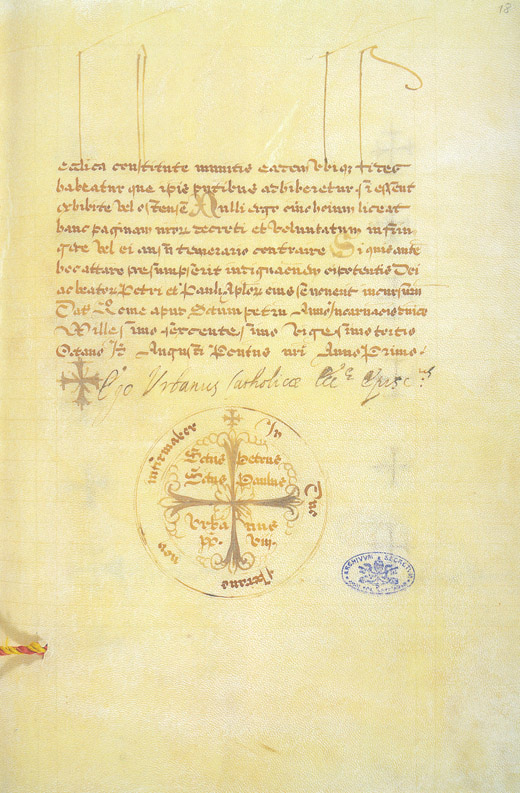 18
eclica constitute munitis eadem ubiq fides
habeatur que ipis pntibus adhiberetur si essent
exhibite vel ostense Nulli ergo oino hoium liceat
hanc paginam nror decreti et voluntatum infrin
gere vel ei ausu temerario contraire Si quis aute
hoc attare presumpserit indignaoem oipotentis Dei
ac beator Petri et Pauli Aplor eius se noverit incursum
Dat Rome apud Sctum petru Anno Incarnacio dnice
Millesimo sexcentesimo Vigesimotertio
Octavo Id Augusti Pontus nri Anno Primo.
Ego Urbanus Catholicae Ecc Episc
Sctus Petrus
Sctus Paulus
Urba nus
pp. VIII.
In Due
ARCHIVUM SECRETUM